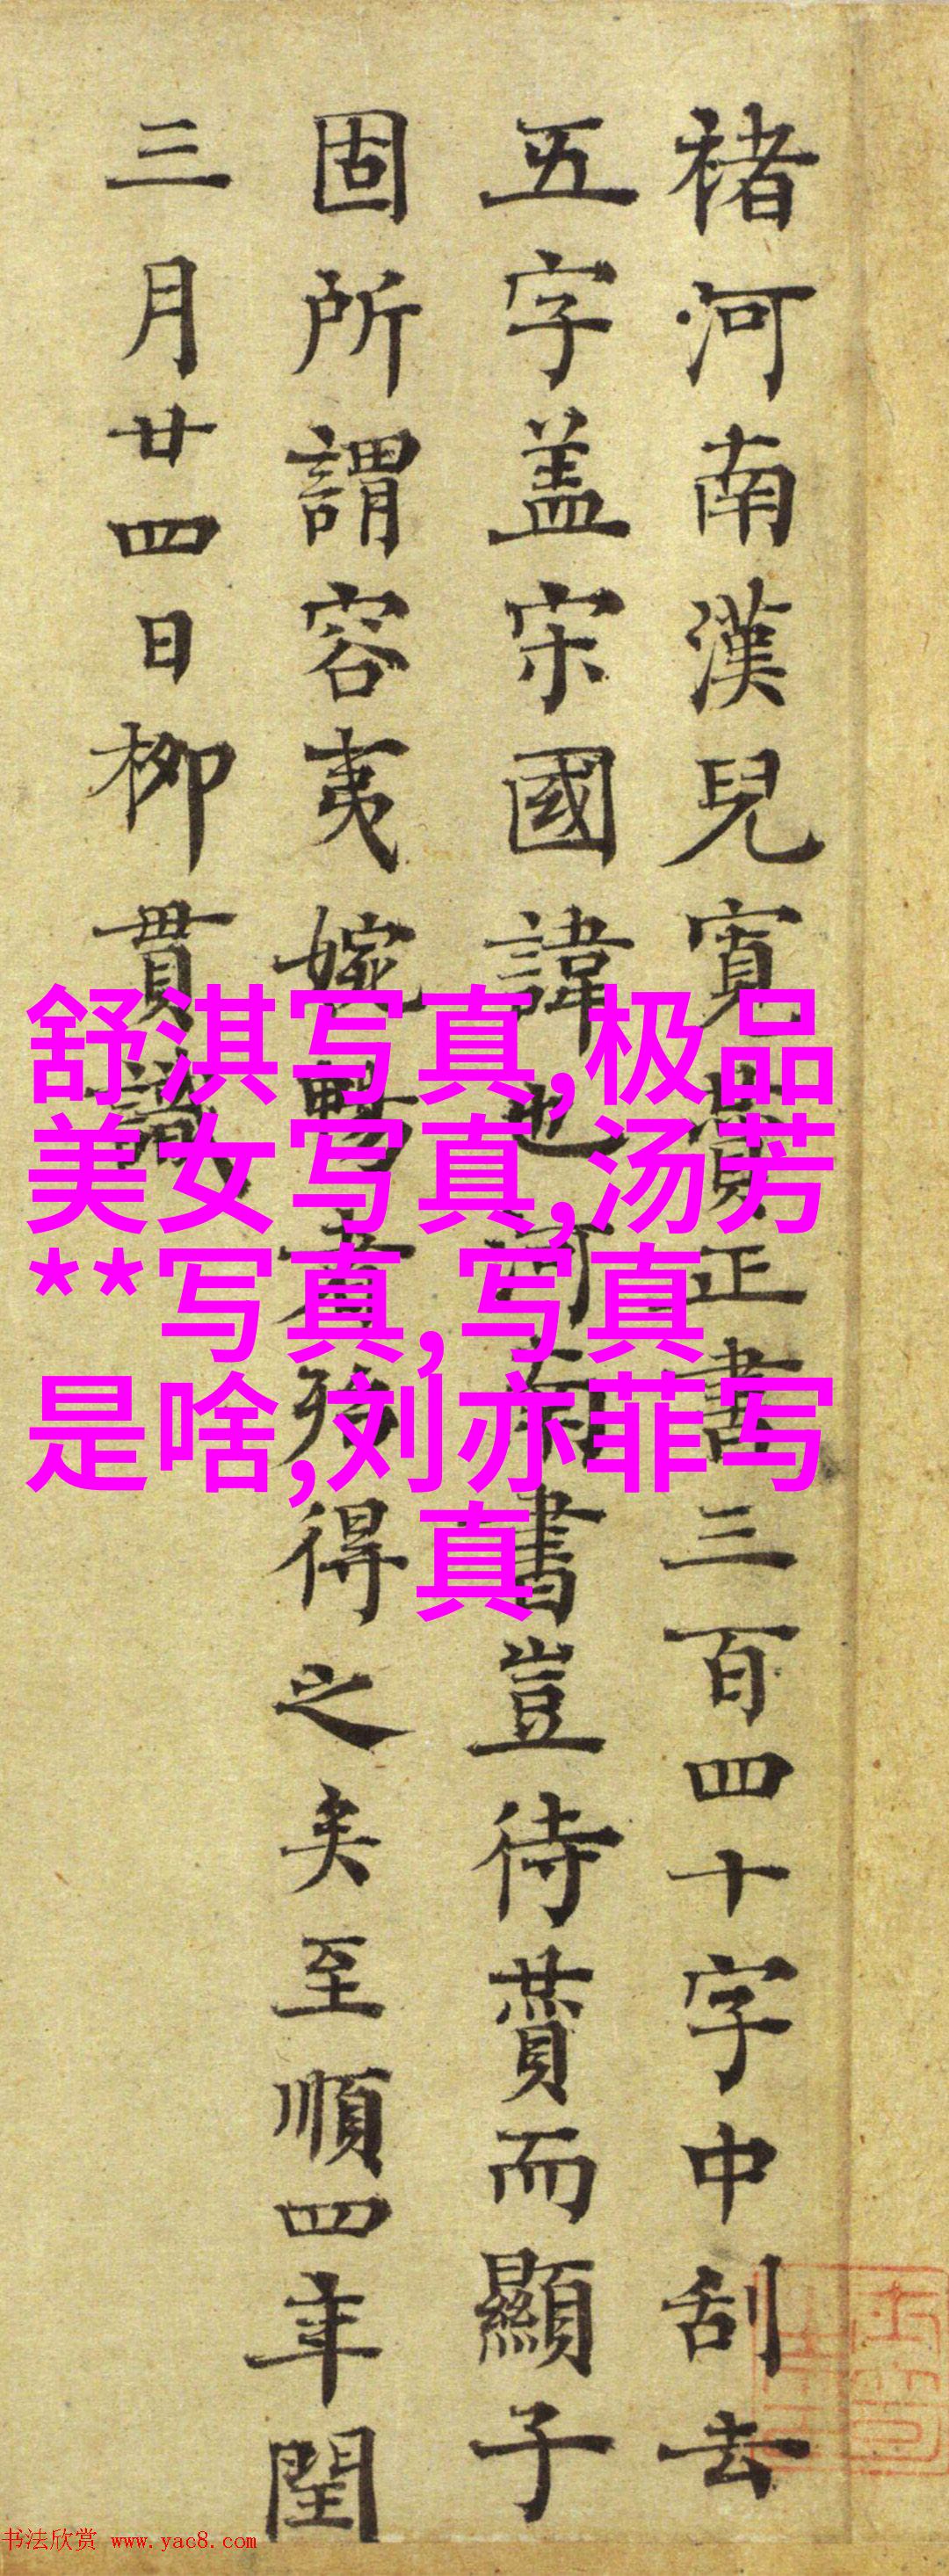 褚河南漢兒寬賛正書三百四十字中刮去
五字盖宋國諱也河南書豈待賛而顯子
固所謂容夷婉暢者殆得之矣至順四年閏
三月廿四日柳貫識
舒淇写真,极品
美女写真,汤芳
**写真,写真
是啥,刘亦菲写
真
书法欣赏 www.yac8.com